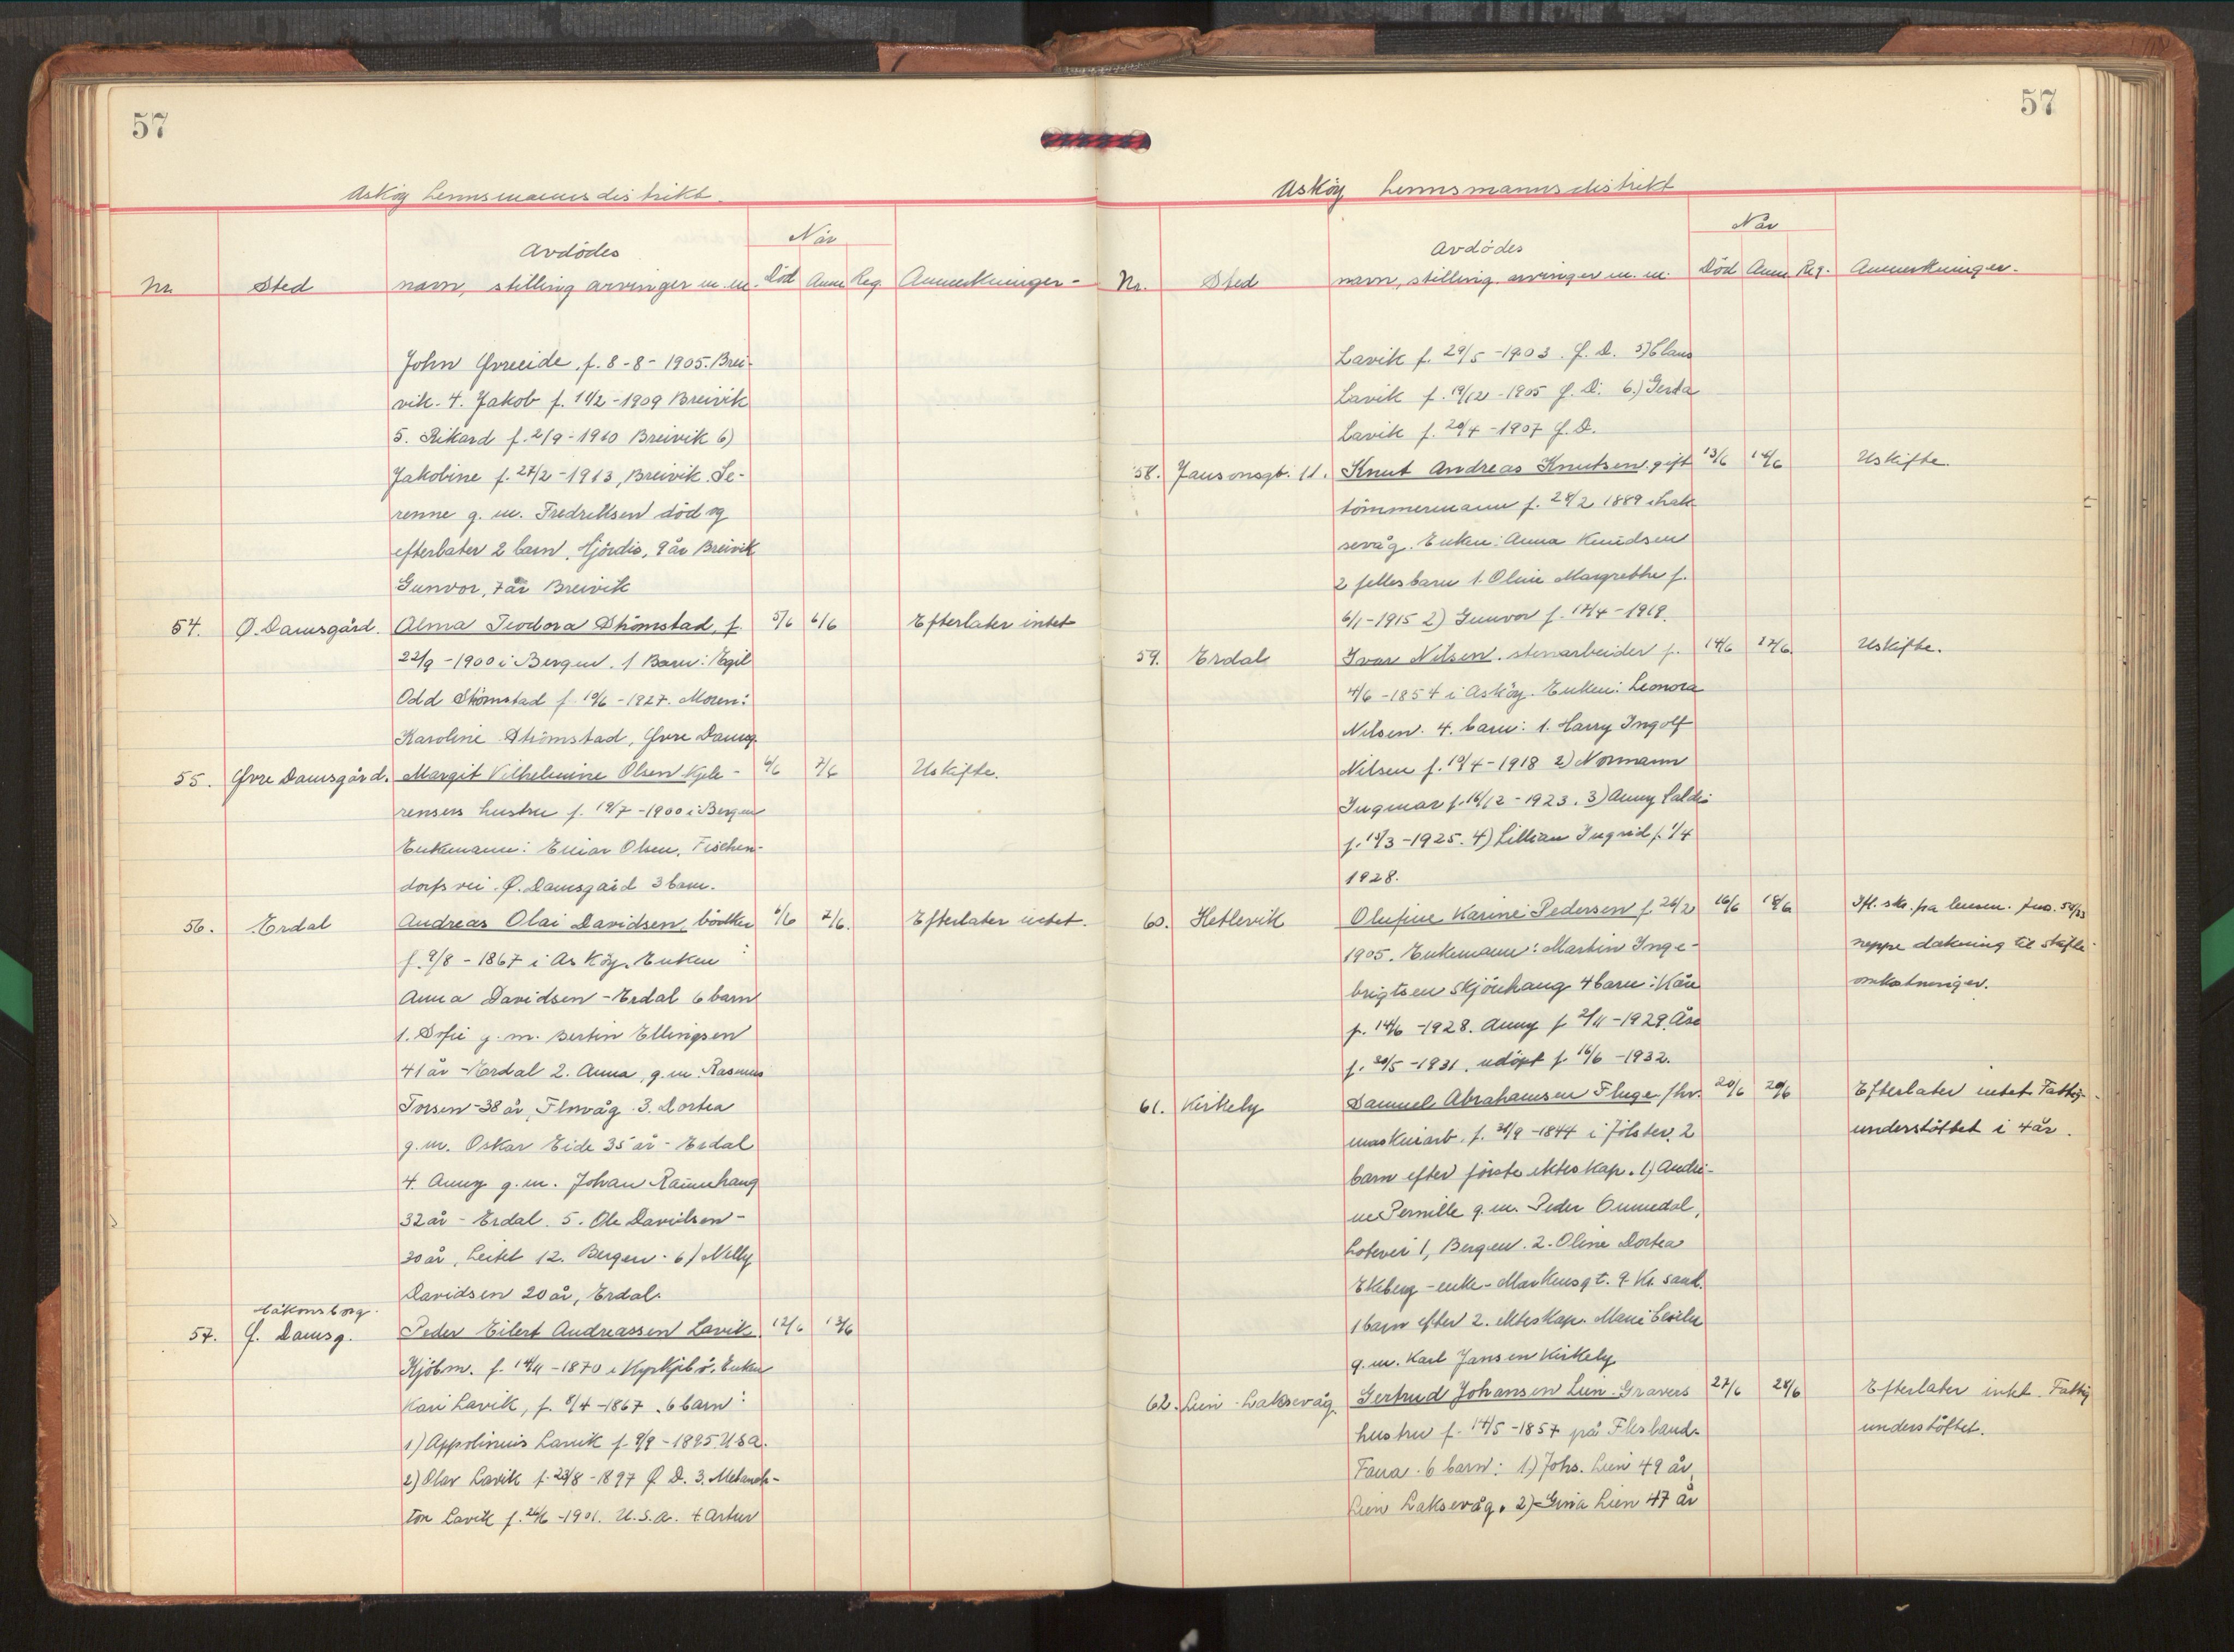 57
Askøy Lennsmannsdistrikt.
Når
Avdødes
Nr. Sted navn, stilling arvinger m. m. Død Anm Reg. Anmerkninger-
John Øvreeide, f. 8-8-1905. Brei-
vik. 4. Jakob f. 11/2-1909 Breivik
5. Rikard f. 2/9-1910 Breivik 6)
Jakobine f. 27/2-1913, Breivik. Se-
renne g. m. Fredriksen død og
efterlater 2 barn, Hjørdis, 9 år Breivik
Gunvor, 7 år Breivik
54. Ø. Damsgård. Alma Teodora Strømstad, f. 5/6 6/6 Efterlater intet
22/9-1900 i Bergen. 1 Barn: Egil
Odd Strømstad f. 19/6-1927. Moren:
Karoline Strømstad, Øvre Damsg.
55. Øvre Damsgård. Margit Vilhelmine Olsen Kjele- 6/6 7/6 Uskifte.
rensers hustru f. 19/7-1900 i Bergen
Enkemann: Einar Olsen, Fischen-
dorfs vei. Ø. Damsgård 3 barn.
56. Erdal Andreas Olai Davidsen, bødker 6/6 7/6. Efterlater intet.
f. 9/8-1867 i Askøy. Enken:
Anna Davidsen-Erdal 6 barn
1. Sofie g. m. Bertin Ellingsen
41 år-Erdal 2. Anna, g. m. Rasmus
Torsen-38 år, Florvåg. 3. Dortea
g. m. Oskar Eide 35 år-Erdal
4. Anny g. m. Johan Ramnhaug
32 år-Erdal. 5. Ole Davidsen-
30 år, Leitet 12. Bergen. 6) Nelly
Davidsen 20 år, Erdal.
Håkonsborg.
57. Ø. Damsg. Peder Eilert Andreassen Lavik. 12/6 13/6
Kjøbm. f. 14/11-1870 i Kyrkjebø. Enken
Kari Lavik, f. 8/4-1867. 6 barn:
1) Appolinus Lavik f. 9/9-1895 U.S.A.
2) Olav Lavik f. 23/8-1897 Ø. D. 3. Melanch-
ton Lavik f. 26/6-1901. U.S.A. 4 Artur
57
Askøy Lennsmannsdistrikt
Når
Avdødes
Nr. Sted navn, stilling, arvinger m. m. Død Anm Reg. Anmerkninger.
Lavik f. 29/5-1903. Ø. D. 5) Claus
Lavik f. 19/12-1905 Ø. D. 6.) Gerda
Lavik f. 20/4-1907 Ø. D.
58. Jansonsgt. 11. Knut Andreas Knutsen, gift 13/6 14/6 Uskifte.
tømmermann f. 28/2 1889 i Lak-
sevåg. Enken: Anna Knudsen
2 fellesbarn 1. Oline Margrethe f.
6/1-1915 2) Gunvor f. 17/4-1919.
59. Erdal Ivar Nilsen, stenarbeider f. 14/6 17/6. Uskifte.
4/6-1854 i Askøy. Enken: Leonora
Nilsen. 4. barn: 1. Harry Ingolf
Nilsen f. 19/4-1918 2) Normann
Ingmar f. 16/12-1923. 3) Anny
f. 13/3-1925. 4) Lillian Ingrid f. 1/4
1928.
60. Hetlevik Olufine Karine Pedersen f. 26/2 16/6 18/6 Ifl. skr. fra lensm.
1905. Enkemann: Martin Inge- neppe dækning til skifte-
brigtsen Skjønhaug 4 barn: Kåre omkostninger.
f. 14/6-1928. Anny f. 2/11-1929. Åse
f. 30/5-1931, udøpt f. 16/6-1932.
61. Kirkely Samuel Abrahamsen Fluge fhv. 20/6 20/6 Efterlater intet Fattig-
maskinarb. f. 30/9-1844 i Jølster. 2 understøttet i 4 år.
barn efter første ekteskap. 1) Andri-
ne Pernille g. m. Peder Ommedal,
1, Bergen. 2. Oline Dortea
Ekeberg-enke-Markensgt. 9 Kr. sand.
1 barn efter 2. ekteskap. Marie
g. m. Karl Jansen Kirkely
62. Lien-Laksevåg. Gertrud Johansen Lien. Gravers 27/6 28/6 Efterlater intet Fattig
hustru f. 14/5-1857 på Flesland- understøttet.
Fana. 6 barn: 1.) Johs. Lien 49 år,
Lien Laksevåg. 2) Gina Lien 47 år